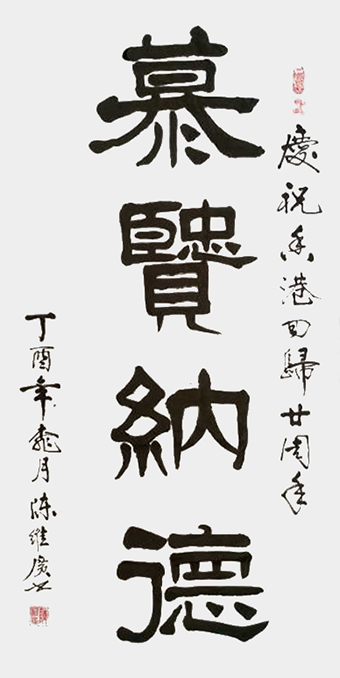 慶祝香港回歸廿周年
慕贒納德
丁酉年月陳維廣书